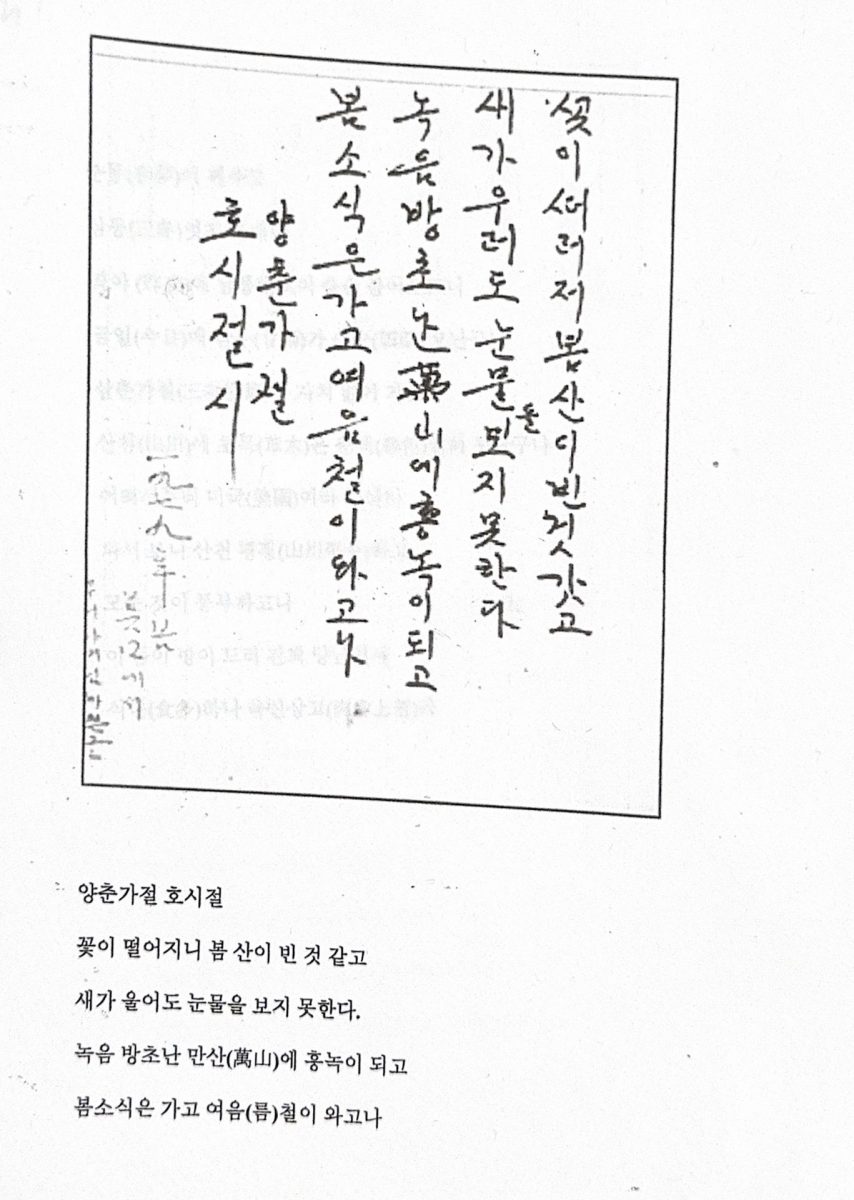 꽃이떠러저봄산이빈것갓고
새가우러도눈물을보지못한다
녹음방초난萬山에홍녹이되고
봄소식은가고여음철이와고나
양춘가절
호시절시
一九七九年 봄
양춘가절 호시절
꽃이 떨어지니 봄 산이 빈 것 같고
새가 울어도 눈물을 보지 못한다.
녹음 방초난 만산(萬山)에 홍녹이 되고
봄소식은 가고 여음(름)철이 와고나